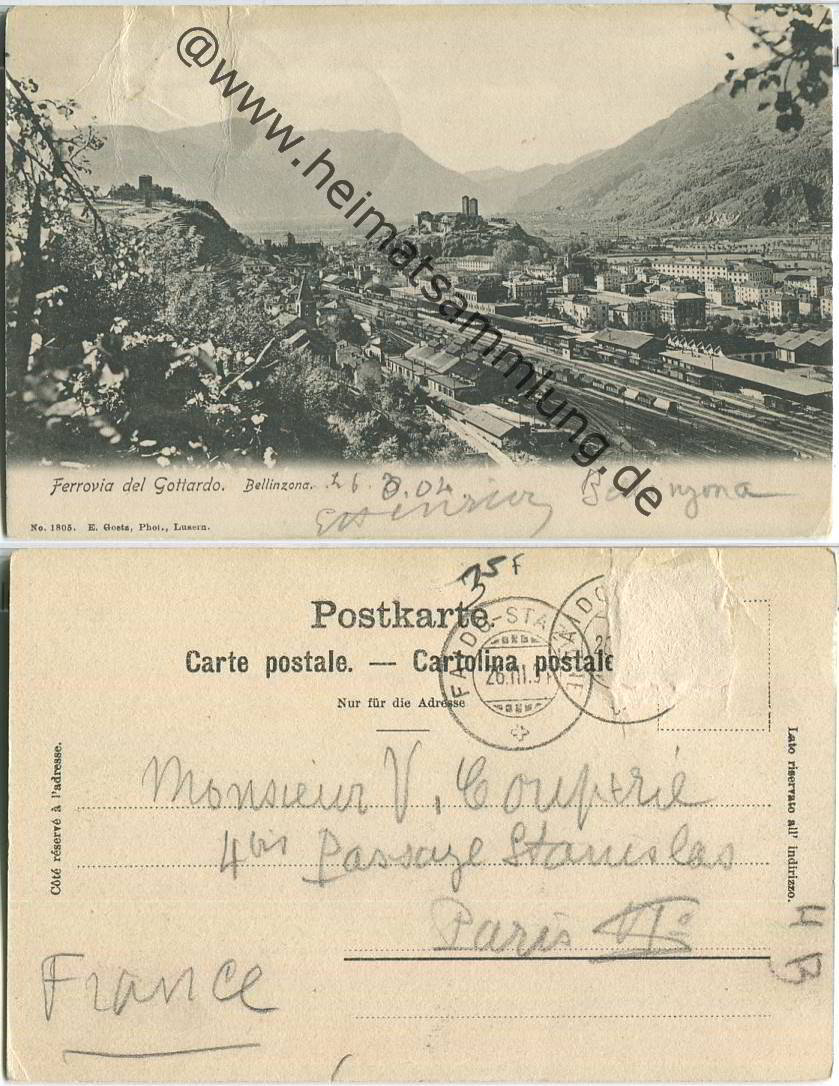 @www.heimatsammlung.de
Ferrovia del Gottardo. Bellinzona. 26.3.04 Bellinzona
No. 1805. E. Goetz, Phot., Luzern.
35 F
Postkarte.
Carte postale. — Cartolina postale
Nur für die Adresse
FAIDO-STAZIONE
26.III.04
FAIDO
Côté réservé à l'adresse.
Lato riservato all' indirizzo.
Monsieur V. Couptrié
4 bis Passage Stanislas
Paris VIe
France